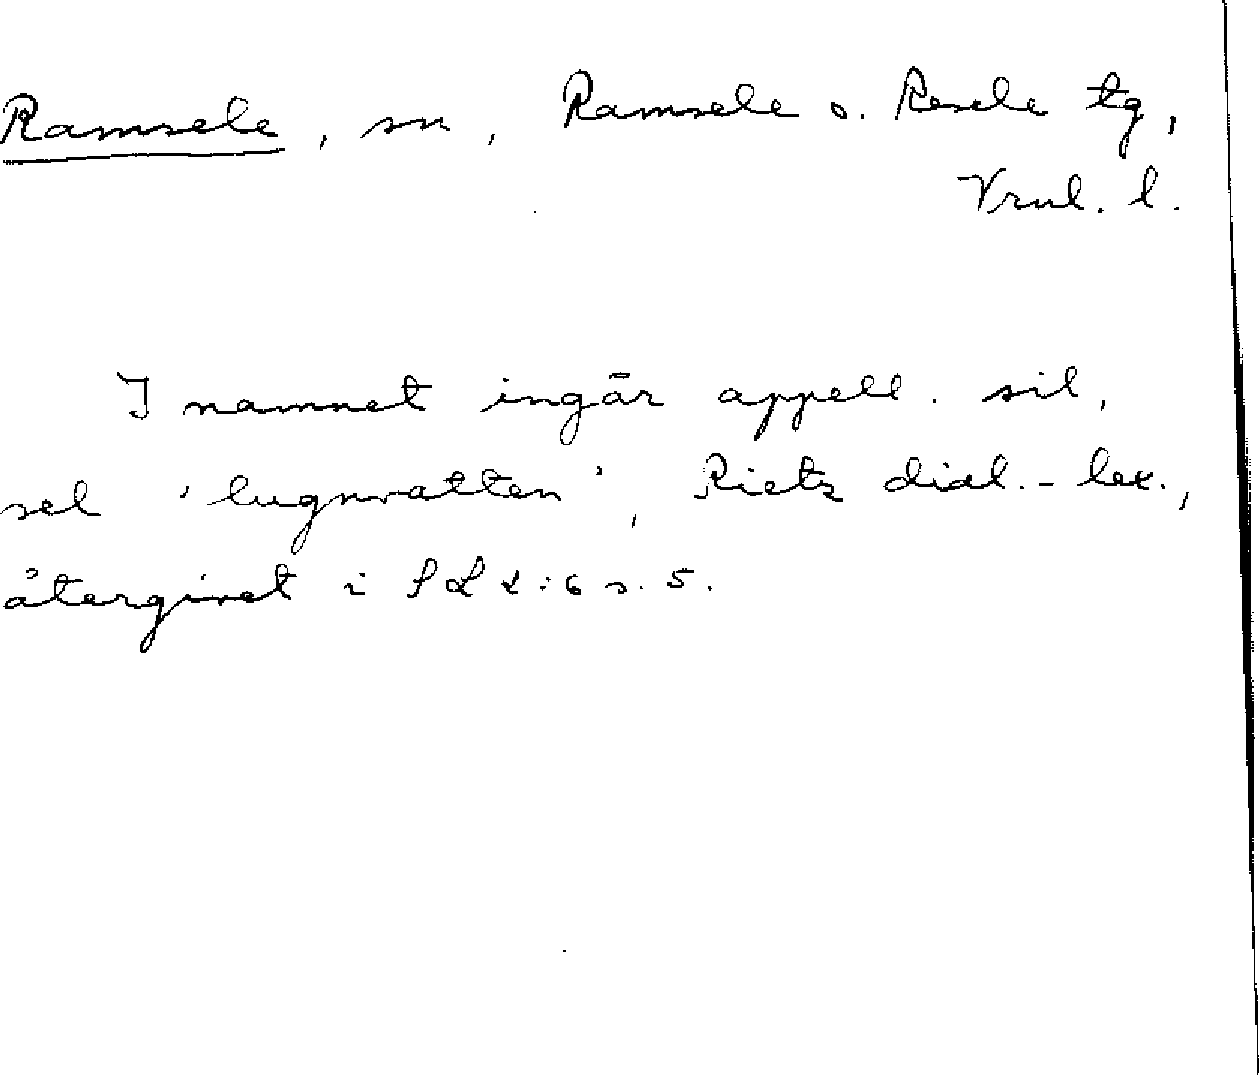 Ramsele, sn, Ramsele o. Resele tg,
Vrnl. l.
I namnet ingår appell. sil,
sel 'lugnvatten', Rietz dial.-lex.,
återgivet i SOL 2:6 s. 5.